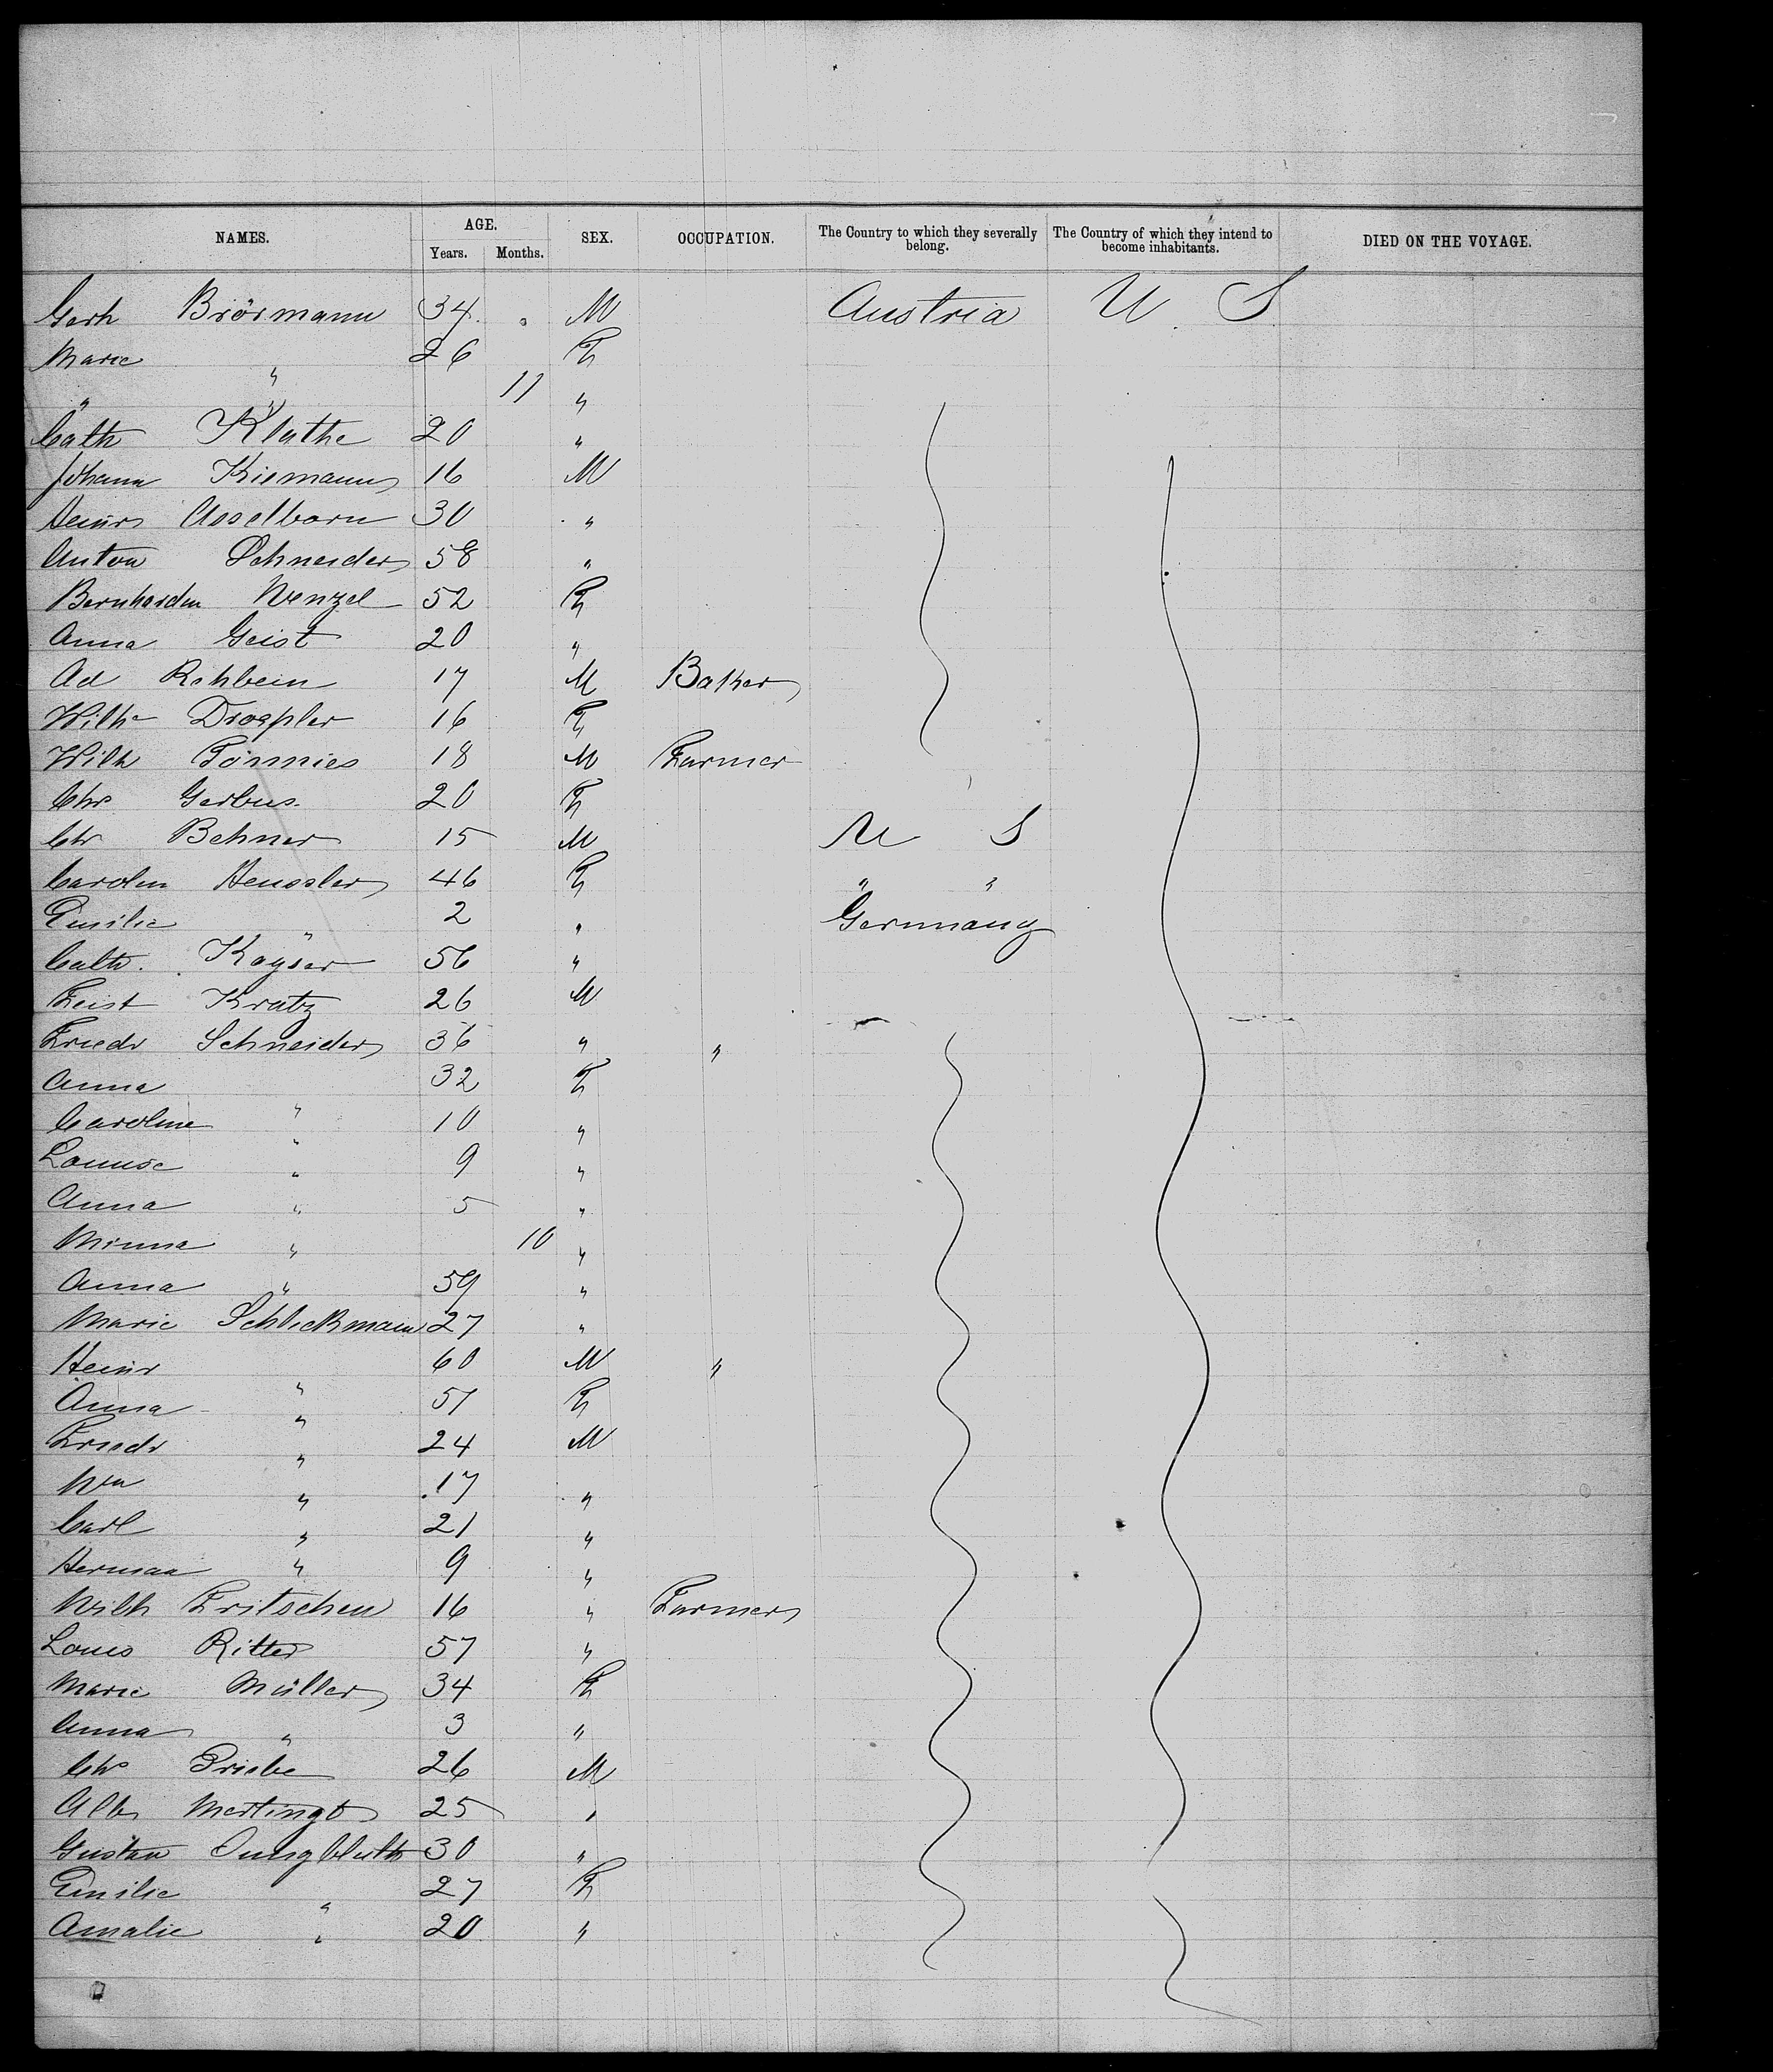 NAMES. AGE. SEX. OCCUPATION. The Country to which they severally belong. The Country of which they intend to become inhabitants. DIED ON THE VOYAGE.
Years. Months.
Gerh Brörmann 34 M Austria U. S.
Marie " 26 F
" " 11 "
Cath Klathe 20 "
Johann Kiemann 16 M
Heinr Asselborn 30 "
Anton Schneider 58 "
Bernhardin Wenzel 52 F
Anna Geist 20 "
Ad Rehbein 17 M Baker
Wilhe Droepler 16 F
Wilh Tönnies 18 M Farmer
Chr Gerbus 20 F
Chr Behner 15 M U S
Carolin Heussler 46 F " "
Emilie " 2 " Germany
Cath. Kayser 56 "
Feist Kratz 26 M
Friedr Schneider 36 " "
Anna " 32 F
Caroline " 10 "
Louise " 9 "
Anna " 5 "
Minna " 10 "
Anna " 59 "
Marie Schlickmann 27 "
Heinr " 60 M "
Anna " 51 F
Friedr " 24 M
Wm " 17 "
Carl " 21 "
Herman " 9 "
Wilh Fritschen 16 " Farmer
Louis Ritter 57 "
Marie Müller 34 F
Anna " 3 "
Chr Priebe 26 M
Alb 25 "
Gustav Jungbluth 30 "
Emilie " 27 F
Amalie " 20 "